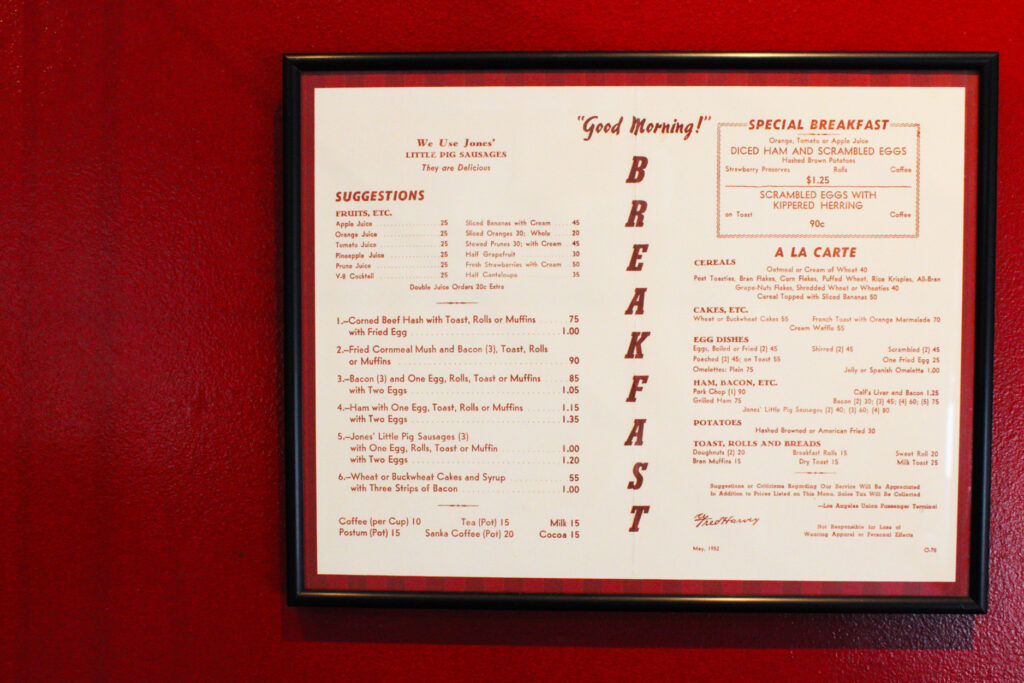 "Good Morning!"
BREAKFAST
We Use Jones'
LITTLE PIG SAUSAGES
They are Delicious
SUGGESTIONS
FRUITS, ETC.
Apple Juice 25
Orange Juice 25
Tomato Juice 25
Pineapple Juice 25
Prune Juice 25
V-8 Cocktail 25
Sliced Bananas with Cream 45
Sliced Oranges 30; Whole 20
Stewed Prunes 30; with Cream 45
Half Grapefruit 30
Fresh Strawberries with Cream 50
Half Cantaloupe 35
Double Juice Orders 20c Extra
1.—Corned Beef Hash with Toast, Rolls or Muffins 75
with Fried Egg 1.00
2.—Fried Cornmeal Mush and Bacon (3), Toast, Rolls
or Muffins 90
3.—Bacon (3) and One Egg, Rolls, Toast or Muffins 85
with Two Eggs 1.05
4.—Ham with One Egg, Toast, Rolls or Muffins 1.15
with Two Eggs 1.35
5.—Jones' Little Pig Sausages (3)
with One Egg, Rolls, Toast or Muffin 1.00
with Two Eggs 1.20
6.—Wheat or Buckwheat Cakes and Syrup 55
with Three Strips of Bacon 1.00
Coffee (per Cup) 10 Tea (Pot) 15 Milk 15
Postum (Pot) 15 Sanka Coffee (Pot) 20 Cocoa 15
SPECIAL BREAKFAST
Orange, Tomato or Apple Juice
DICED HAM AND SCRAMBLED EGGS
Hashed Brown Potatoes
Strawberry Preserves Rolls Coffee
$1.25
SCRAMBLED EGGS WITH
KIPPERED HERRING
on Toast Coffee
90c
A LA CARTE
CEREALS
Oatmeal or Cream of Wheat 40
Post Toasties, Bran Flakes, Corn Flakes, Puffed Wheat, Rice Krispies, All-Bran
Grape-Nuts Flakes, Shredded Wheat or Wheaties 40
Cereal Topped with Sliced Bananas 50
CAKES, ETC.
Wheat or Buckwheat Cakes 55 French Toast with Orange Marmalade 70
Cream Waffle 55
EGG DISHES
Eggs, Boiled or Fried (2) 45 Shirred (2) 45 Scrambled (2) 45
Poached (2) 45; on Toast 55 One Fried Egg 25
Omelettes: Plain 75 Jelly or Spanish Omelette 1.00
HAM, BACON, ETC.
Pork Chop (1) 90 Calf's Liver and Bacon 1.25
Grilled Ham 75 Bacon (2) 30; (3) 45; (4) 60; (5) 75
Jones' Little Pig Sausages (2) 40; (3) 60; (4) 80
POTATOES
Hashed Browned or American Fried 30
TOAST, ROLLS AND BREADS
Doughnuts (2) 20 Breakfast Rolls 15 Sweet Roll 20
Bran Muffins 15 Dry Toast 15 Milk Toast 25
Suggestions or Criticisms Regarding Our Service Will Be Appreciated
In Addition to Prices Listed on This Menu, Sales Tax Will Be Collected
—Los Angeles Union Passenger Terminal
Fred Harvey
Not Responsible for Loss of
Wearing Apparel or Personal Effects
May, 1952 O-78